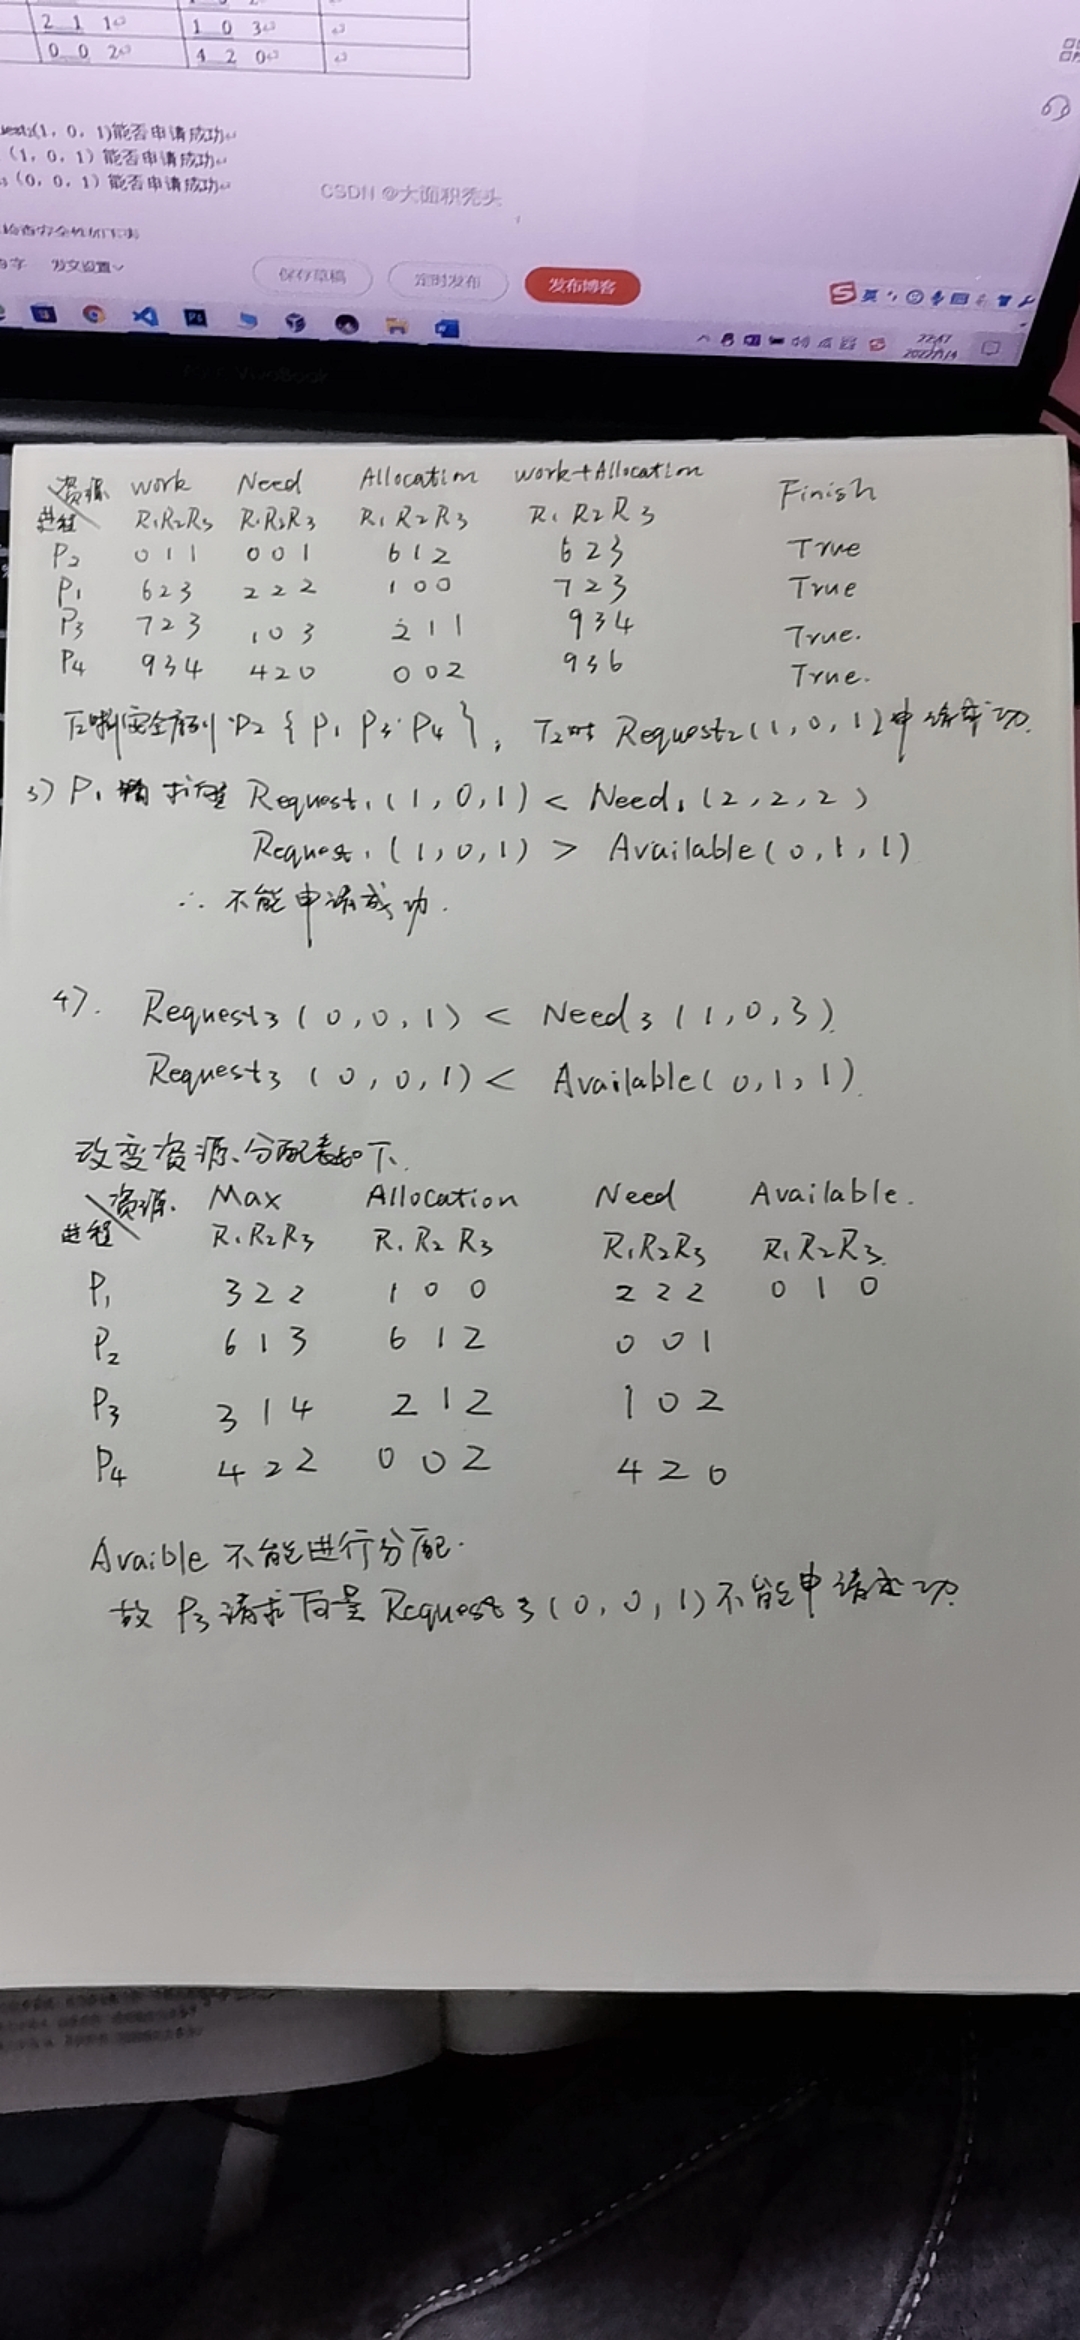 2 1 1 1 0 3
0 0 2 4 2 0
(1，0，1)能否申请成功
（1，0，1）能否申请成功
（0，0，1）能否申请成功
CSDN @大面积秃头
发文设置
保存草稿 定时发布 发布博客
英
22:47
资源 work Need Allocation work+Allocation Finish
进程 R1R2R3 R1R2R3 R1 R2 R3 R1 R2 R3
P2 0 1 1 0 0 1 6 1 2 6 2 3 True
P1 6 2 3 2 2 2 1 0 0 7 2 3 True
P3 7 2 3 1 0 3 2 1 1 9 3 4 True.
P4 9 3 4 4 2 0 0 0 2 9 3 6 True.
安全序列 P2 { P1 P3 P4 }, T2时 Request2(1,0,1)申请成功.
3) P1 请求向量 Request1(1,0,1) < Need1(2,2,2)
Reques1(1,0,1) > Available(0,1,1)
∴ 不能申请成功.
4). Request3(0,0,1) < Need3(1,0,3).
Request3(0,0,1) < Available(0,1,1).
改变资源分配表如下.
资源 Max Allocation Need Available.
进程 R1R2R3 R1 R2 R3 R1R2R3 R1R2R3.
P1 3 2 2 1 0 0 2 2 2 0 1 0
P2 6 1 3 6 1 2 0 0 1
P3 3 1 4 2 1 2 1 0 2
P4 4 2 2 0 0 2 4 2 0
Avaible 不能进行分配.
故 P3 请求向量 Request3(0,0,1)不能申请成功